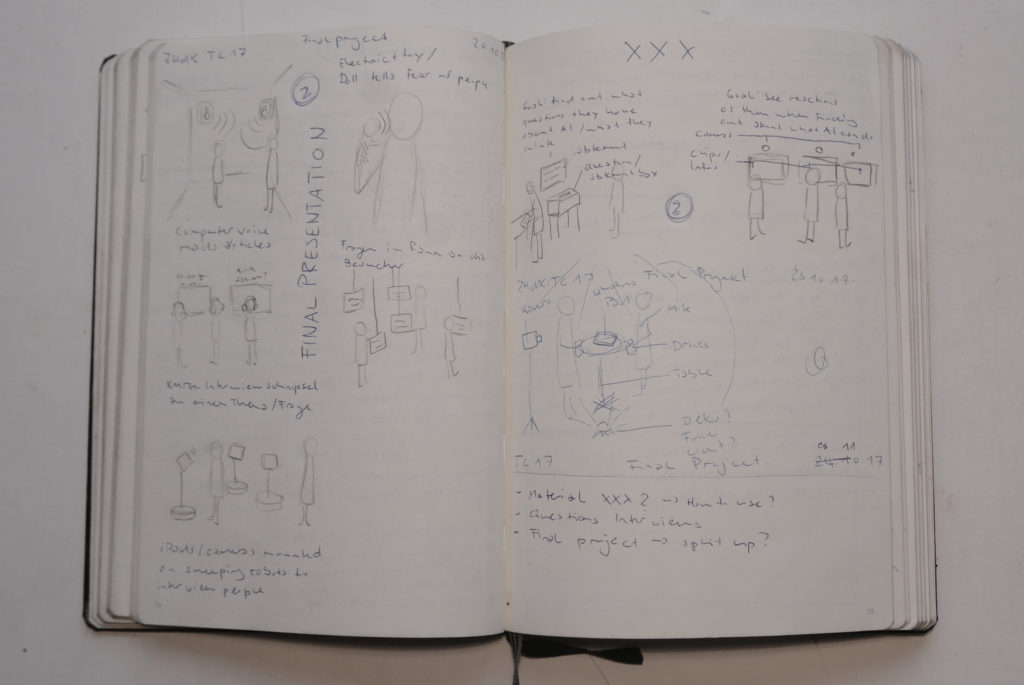 ZHdK TC 17
Final project
20.10
Electricity /
Doll tells Fear of people
2
FINAL PRESENTATION
Computer voice
reads articles
Fragen im Raum an die
Besucher
Kurze Interviewschnipsel
zu einem Thema/Frage
iPads/cameras mounted
on sweeping robots to
interview people
XXX
Goal: find out what
questions they have
about AI / what they
think
statement
question/
statement box
Goal: See reactions
of them when finding
out about what AI can do
Cameras
Clips/
Infos
2
ZHdK TC 17
Final Projekt
25.10.17
Questions
Mik
Drinks
Table
Deko?
TC 17
Final Project
17
- Material XXX 2 → How to use?
- Questions Interviews
- Final project → split up?